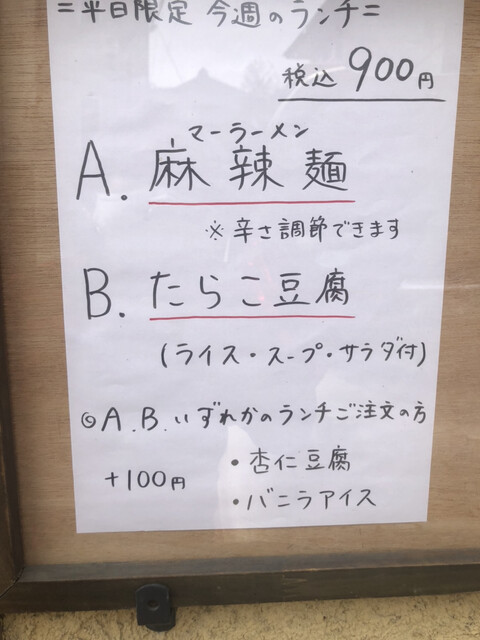 =平日限定 今週のランチ=
税込 900円
マーラーメン
A. 麻辣麺
※辛さ調節できます
B. たらこ豆腐
(ライス・スープ・サラダ付)
◎A.B.いずれかのランチご注文の方
・杏仁豆腐
+100円
・バニラアイス